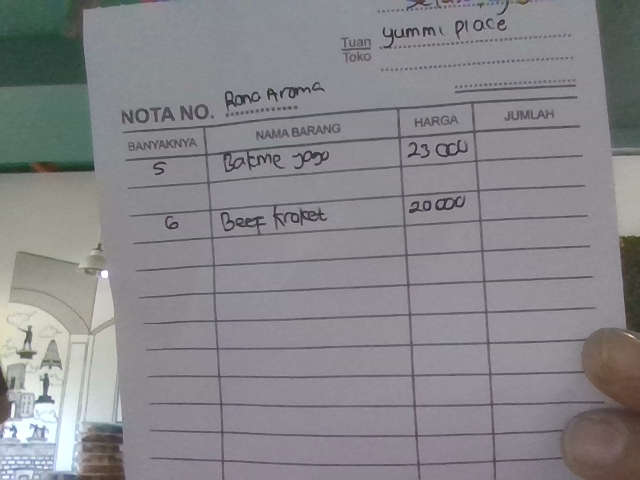 Tuan yummi place
Toko
NOTA NO. Rona Aroma
BANYAKNYA NAMA BARANG HARGA JUMLAH
5 Bakme jogo 23 000
6 Beef kroket 20 000